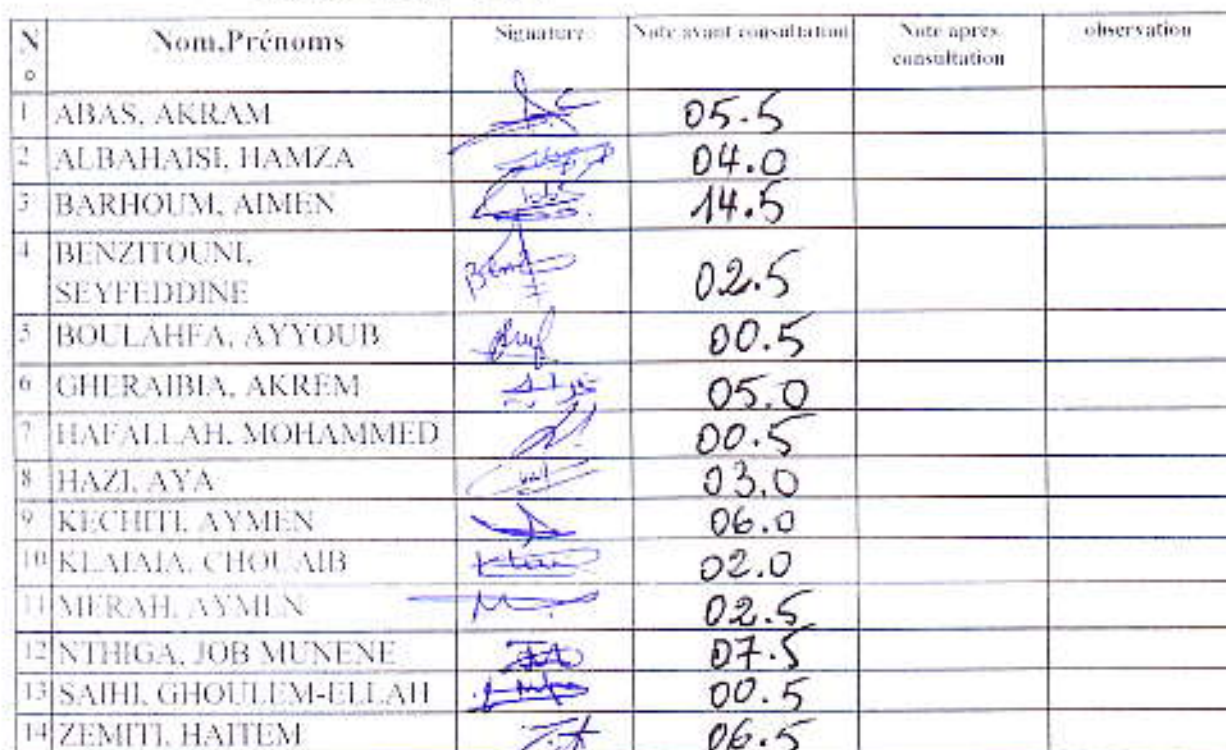 N° Nom.Prénoms Signature Note avant consultation Note après consultation observation
1 ABAS, AKRAM 05.5
2 ALBAHAISI, HAMZA 04.0
3 BARHOUM, AIMEN 14.5
4 BENZITOUNI, SEYFEDDINE 02.5
5 BOULAHFA, AYYOUB 00.5
6 GHERAIBIA, AKREM 05.0
7 HAFALLAH, MOHAMMED 00.5
8 HAZI, AYA 03.0
9 KECHITI, AYMEN 06.0
10 KLAIAIA, CHOUAIB 02.0
11 MERAH, AYMEN 02.5
12 NTHIGA, JOB MUNENE 07.5
13 SAIHI, GHOULEM-ELLAH 00.5
14 ZEMITI, HAITEM 06.5